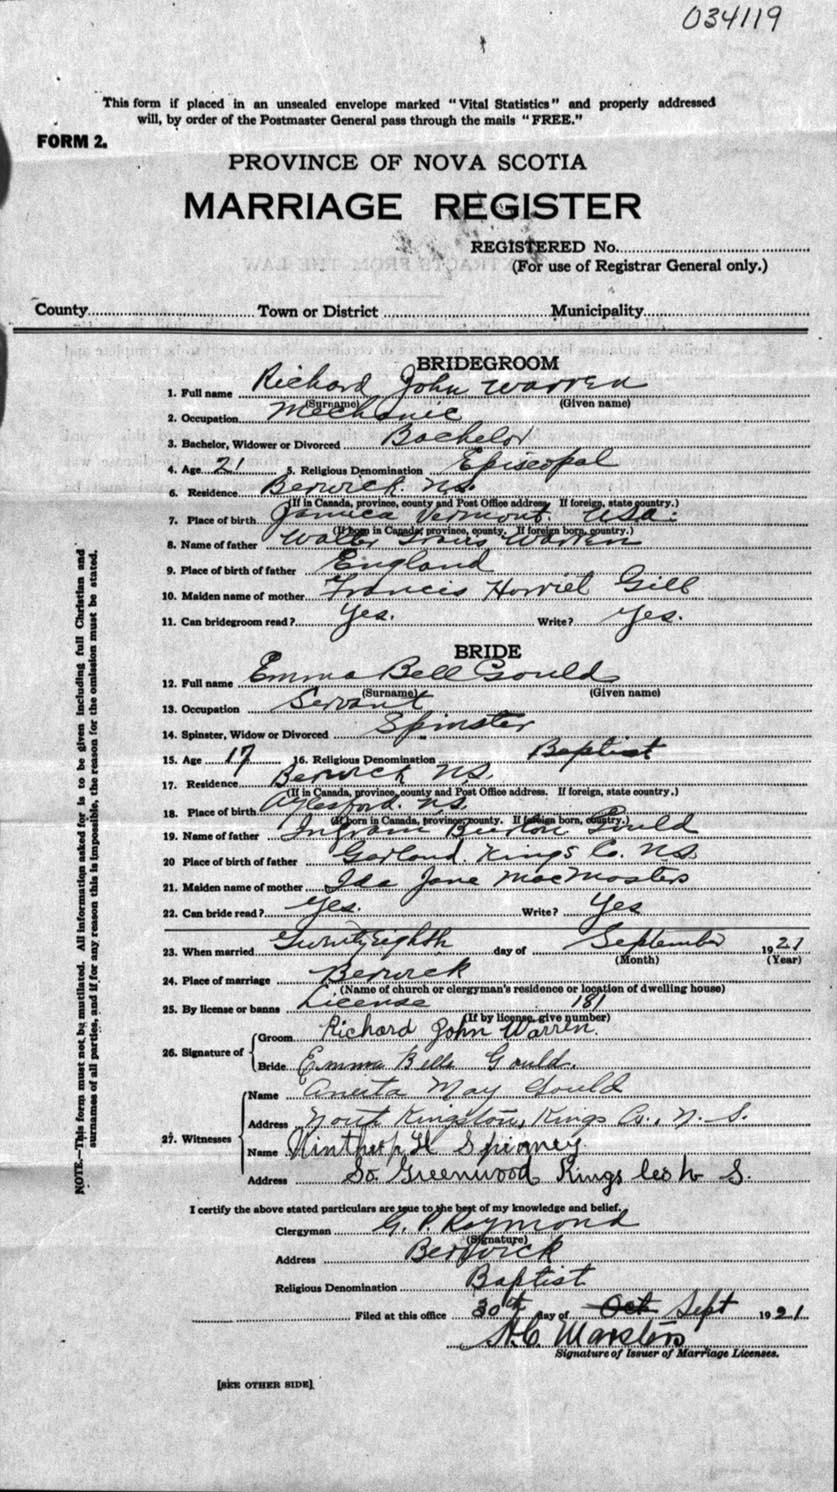 034119
This form if placed in an unsealed envelope marked "Vital Statistics" and properly addressed
will, by order of the Postmaster General pass through the mails "FREE."
FORM 2.
PROVINCE OF NOVA SCOTIA
MARRIAGE REGISTER
REGISTERED No.
(For use of Registrar General only.)
County Town or District Municipality
BRIDEGROOM
1. Full name Richard John Warren
(Surname) (Given name)
2. Occupation Mechanic
3. Bachelor, Widower or Divorced Bachelor
4. Age 21 5. Religious Denomination Episcopal
6. Residence Berwick N.S.
(If in Canada, province, county and Post Office address. If foreign, state country.)
7. Place of birth Jamica Vermont. U.S.A.
(If born in Canada, province, county. If foreign born, country.)
8. Name of father Walter Warren
9. Place of birth of father England
10. Maiden name of mother Francis Gill
11. Can bridegroom read? Yes. Write? Yes.
BRIDE
12. Full name Emma Bell Gould
(Surname) (Given name)
13. Occupation Servant
14. Spinster, Widow or Divorced Spinster
15. Age 17 16. Religious Denomination Baptist
17. Residence Berwick N.S.
(If in Canada, province, county and Post Office address. If foreign, state country.)
18. Place of birth Aylesford. N.S.
(If born in Canada, province, county. If foreign born, country.)
19. Name of father Ingram Burton Gould
20 Place of birth of father Garland. Kings Co. N.S.
21. Maiden name of mother Ida Jane MacMasters
22. Can bride read? Yes. Write? Yes
23. When married Twenty Eighth day of September 1921
(Month) (Year)
24. Place of marriage Berwick
(Name of church or clergyman's residence or location of dwelling house)
25. By license or banns License 181
(If by license, give number)
26. Signature of Groom Richard John Warren.
Bride Emma Bell Gould.
27. Witnesses Name May Gould
Address North Kingston, Kings Co., N. S.
Name Winthrop H Spinney
Address So. Greenwood Kings Co N S.
I certify the above stated particulars are true to the best of my knowledge and belief.
Clergyman G. P. Raymond
(Signature)
Address Berwick
Religious Denomination Baptist
Filed at this office 30th day of Oct Sept 1921
H.C. Marsters
Signature of Issuer of Marriage Licenses.
[SEE OTHER SIDE]
NOTE.—This form must not be mutilated. All information asked for is to be given including full Christian and
surnames of all parties, and if for any reason this is impossible, the reason for the omission must be stated.